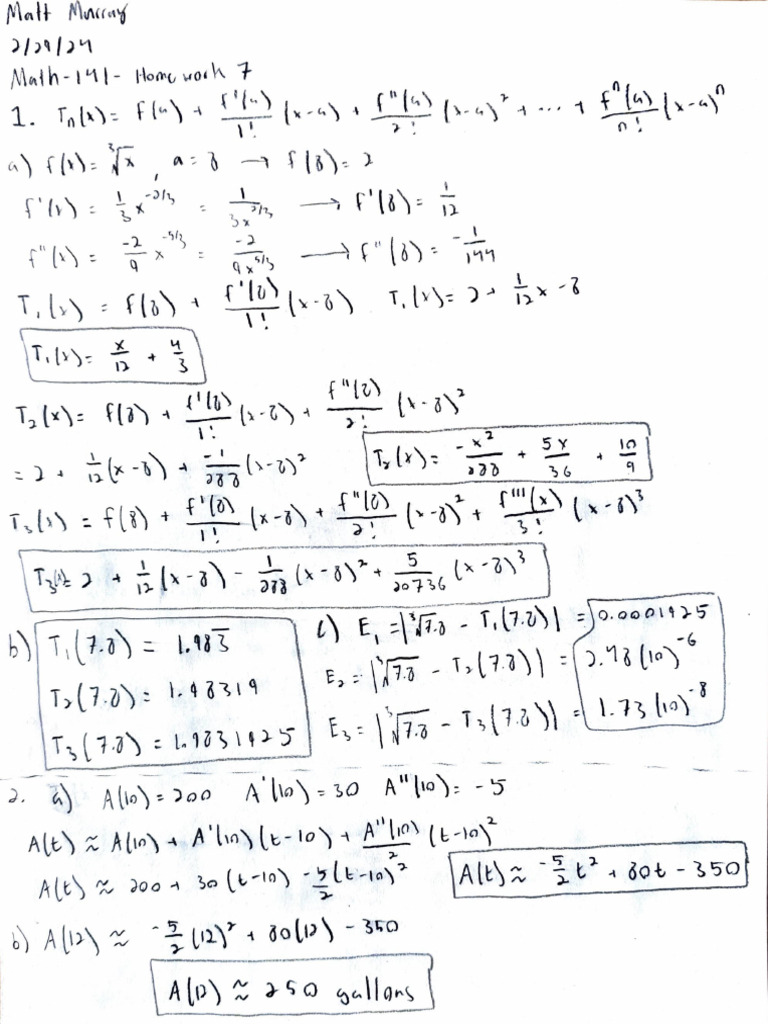 Matt Murray
2/29/24
Math-141- Homework 7
1. Tn(x) = f(a) + f'(a)/1! (x-a) + f''(a)/2! (x-a)² + ... + fⁿ(a)/n! (x-a)ⁿ
a) f(x) = ∛x, a = 8 → f(8) = 2
f'(x) = 1/3 x^(-2/3) = 1/(3x^(2/3)) → f'(8) = 1/12
f''(x) = -2/9 x^(-5/3) = -2/(9x^(5/3)) → f''(8) = -1/144
T₁(x) = f(8) + f'(8)/1! (x-8) T₁(x) = 2 + 1/12 x - 8
T₁(x) = x/12 + 4/3
T₂(x) = f(8) + f'(8)/1! (x-8) + f''(8)/2! (x-8)²
= 2 + 1/12 (x-8) + -1/288 (x-8)² T₂(x) = -x²/288 + 5x/36 + 10/9
T₃(x) = f(8) + f'(8)/1! (x-8) + f''(8)/2! (x-8)² + f'''(x)/3! (x-8)³
T₃(x) = 2 + 1/12 (x-8) - 1/288 (x-8)² + 5/20736 (x-8)³
b) T₁(7.8) = 1.983̅
T₂(7.8) = 1.98319
T₃(7.8) = 1.9831925
c) E₁ = |∛7.8 - T₁(7.8)| = 0.0001425
E₂ = |∛7.8 - T₂(7.8)| = 2.98(10)⁻⁶
E₃ = |∛7.8 - T₃(7.8)| = 1.73(10)⁻⁸
2. a) A(10) = 200 A'(10) = 30 A''(10) = -5
A(t) ≈ A(10) + A'(10)(t-10) + A''(10)/2 (t-10)²
A(t) ≈ 200 + 30(t-10) - 5/2 (t-10)² A(t) ≈ -5/2 t² + 80t - 350
b) A(12) ≈ -5/2 (12)² + 80(12) - 350
A(12) ≈ 250 gallons